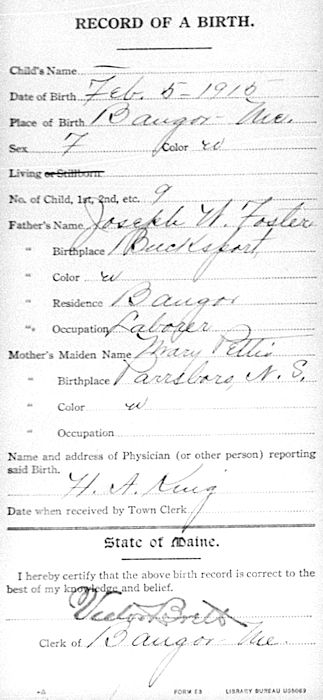 RECORD OF A BIRTH.
Child's Name —
Date of Birth Feb. 5 - 1915
Place of Birth Bangor - Me.
Sex F Color w
Living or Stillborn
No. of Child, 1st, 2nd, etc. 9
Father's Name Joseph W. Foster
" Birthplace Bucksport,
" Color w
" Residence Bangor
" Occupation Laborer
Mother's Maiden Name Mary Pettis
" Birthplace Parrsboro, N. S.
" Color w
" Occupation
Name and address of Physician (or other person) reporting
said Birth.
H. A. King
Date when received by Town Clerk
State of Maine.
I hereby certify that the above birth record is correct to the
best of my knowledge and belief.
Victor Brett
Clerk of Bangor - Me.
FORM E3 LIBRARY BUREAU